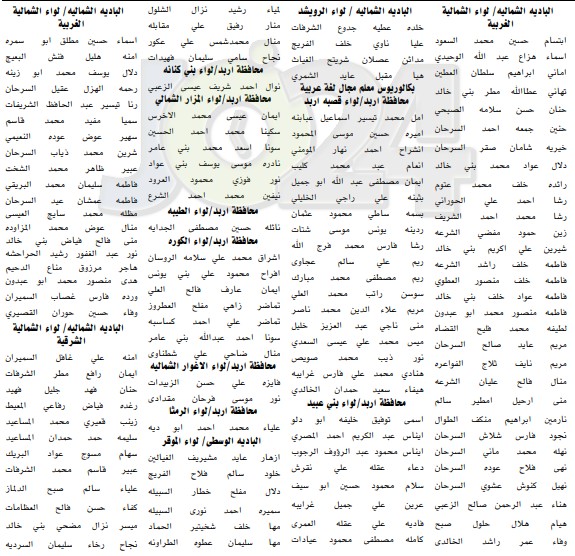 الباديه الشماليه/ لواء البادية الشمالية الغربية
ابتسام حسين محمد السعود
اسماء هزاع عبد الله الوحيدي
اماني ابراهيم سلطان العطين
تهاني عطاالله مطر بني خالد
حنان حسن سلامه الصبيحي
حنين جمعه احمد السرحان
خيريه شامان صقر السرحان
دلال عواد محمد بني خالد
رائده خلف محمد عنوم
رشا احمد علي الحوراني
رشا محمد احمد الشريف
زين حمود مفضي الشرعه
شيرين علي اكريم بني خالد
فاطمه خلف راشد الشرعه
فاطمه خلف منصور العطوي
فاطمه عواد خلف بني خالد
فاطمه منصور محمد ابو عيدون
لطيفه محمد فليح القضاه
مريم عايد صالح السرحان
مريم نايف ثلاج الفواعره
منال فالح عليان الشرعه
منى ارحيل امطير سالم
نارمين ابراهيم منكف الطوال
نجود فارس شلاش السرحان
نهله محمد ماني السرحان
نهى فلاح عوده السرحان
نهيل كنوش عشوي السرحان
هناء عبد الرحمن صالح الزعبي
هيام هلال حلول صبح
وفاء عمر راشد الخالدي
الباديه الشماليه / لواء الرويشد
خلده عطيه جدوع الشرفات
عليا ناوي خلف الفريج
مدائن عصلان شريتح الغياث
هيا مقبل عايد الشمري
بكالوريوس معلم مجال لغة عربية
محافظة اربد/لواء قصبه اربد
امل محمد تيسير اسماعيل عبابنه
اميره حسين موسى المحمود
انشراح احمد نهار المومني
انعام عيد محمد كليب
ايمان مصطفى عبد الله ابو جميل
بثينه علي راجي الخليلي
بسمه ساطي محمود عثمان
ردينه يونس موسى شتات
رشا فارس محمد فرج الله
ريم علي سالم عجاوي
ريم مصطفى محمد مبارك
سوسن راتب محمد العلي
مريم علاء الدين محمد ناصر
منى ناجي عبد العزيز خليل
ميس محمد علي عيسى السعدي
نور ذيب محمد صويص
هنادي محمد علي فارس غرايبه
هيفاء سعيد حمدان الخالدي
محافظة اربد/لواء بني عبيد
اسمى توفيق خليفه ابو دلو
ايناس عبد الكريم احمد المصري
ايناس محمود عبد الرؤوف الرجوب
دعاء عقله علي نقرش
سلام محمود حسين ابو سيف
عرين علي جميل غرايبه
فاديه علي عقله العمري
كامله مصطفى محمود عيادات
لمياء رشيد نزال الشلول
منار رفيق علي مقابله
منال محمدشمس علي عكور
نجاح سامي سليمان فهيدات
محافظة اربد/لواء بني كنانه
نوال احمد شريف عيسى الزعبي
محافظة اربد/لواء المزار الشمالي
ايمان عيسى محمد الاخرس
سكينا محمد احمد الحسين
سونا اسعد محمد بني عامر
نادره موسى يوسف بني عواد
نور فوزي محمود العرود
نيفين محمد احمد الشرع
محافظة اربد/لواء الطيبه
نائله حسين مصطفى الجدايه
محافظة اربد/لواء الكوره
اشراق محمد علي سلامه الروسان
افراح محمود علي بني يونس
ايمان عارف فالح العلي
تماضر زاهي مفلح العطروز
تماضر علي احمد كساسبه
سونا احمد عبدالله بني عامر
منال ضاحي علي شطناوي
محافظة اربد/لواء الاغوار الشماليه
فايزه علي حسن الزبيدات
نور موسى فرحان مقدادي
محافظة اربد/لواء الرمثا
علياء محمد احمد ابو ديه
الباديه الوسطى/ لواء الموقر
ازهار عايد مشيريف الفيالين
خلود سالم فلاح الفريج
دلال مفلح خطار السبيله
سميره احمد نوري السبيله
مها خلف شخيتير الحماد
مها سليمان عطوه الطراونه
الباديه الشماليه/ لواء البادية الشمالية الغربية
اسماء حسين مطلق ابو سمره
امنه هليل فنش البعيج
دلال يوسف محمد ابو زينه
رحمه الهزل عقيل السرحان
رنا تيسير عبد الحافظ الشريفات
سميا مفيد محمد قاسم
سهير عوض عوده النعيمي
شرين محمد ذياب السرحان
عبير ظاهر محمد الشخت
فاطمه سليمان محمد البريقي
فاطمه عمشان عيد السرحان
مظله محمد سايح العيسى
منال عوض محمد المزاوده
منى فالح فياض بني خالد
نور عبد الغفور رشيد الحراحشه
هاجر مرزوق مناع الدحيم
هدى منصور محمد ابو عيدون
ورده فارس غصاب السميران
وفاء حسين حوران القصيري
الباديه الشماليه/ لواء البادية الشمالية الشرقية
امنه علي غافل السميران
ايمان رافع مطر الشرفات
حنان فهد جليل فهيد
رغده فياض رفاعي المعيط
زينب قعيري محمد المساعيد
سليمه حمد حمدان المساعيد
سهام مسوح عواد البريك
عبير قاسم محمد الشرفات
علياء سالم صبح الدلماز
كفاء حسن فالح العظامات
ميسر نزال مضحي بني خالد
نجاح رخاء سليمان السرديه